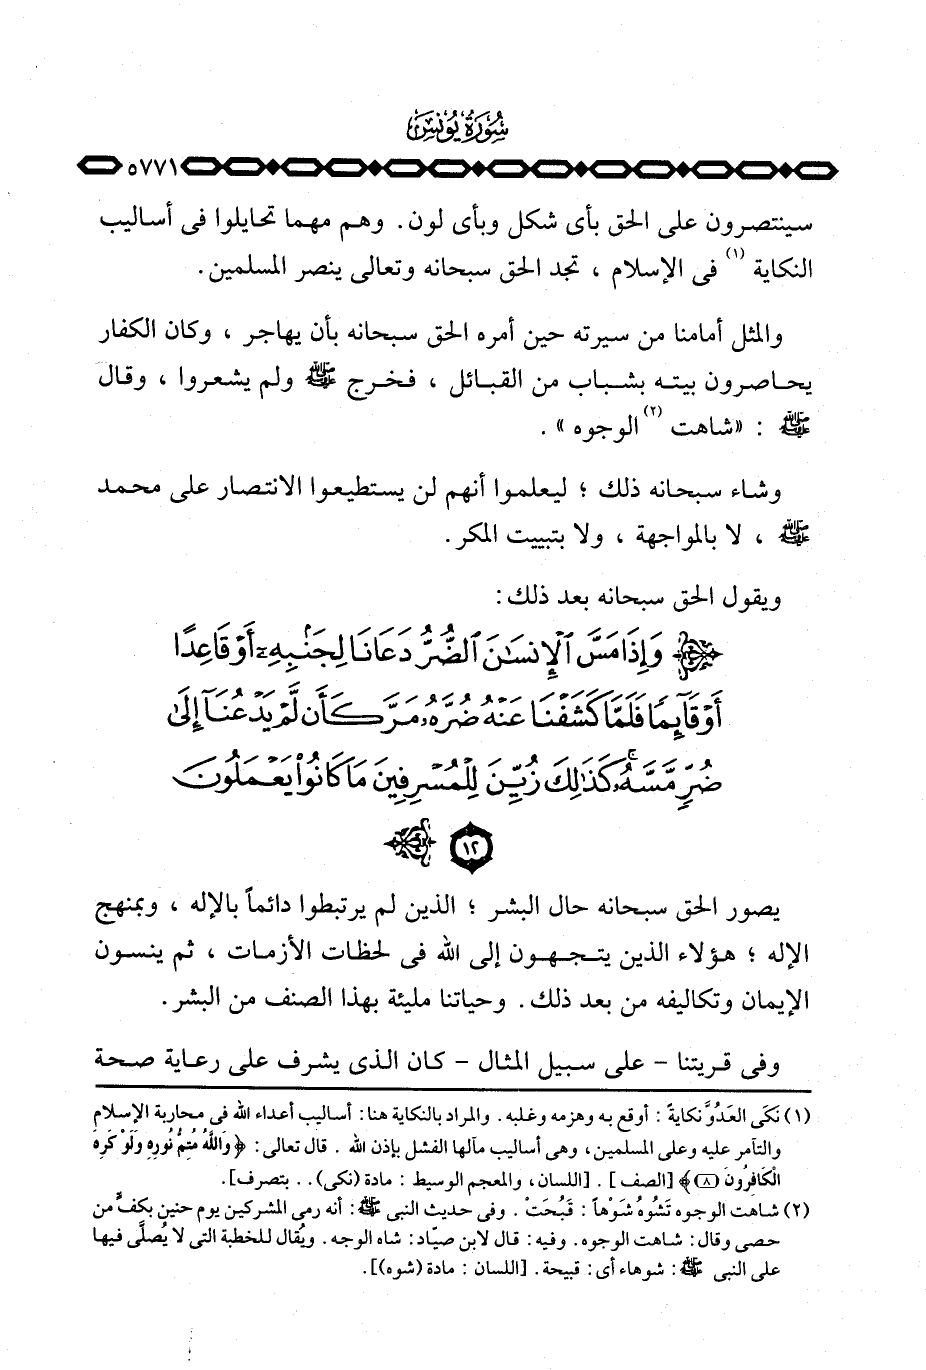 سُورَةُ يُونس
٥٧٧١
سينتصرون على الحق بأى شكل وبأى لون. وهم مهما تحايلوا فى أساليب
النكاية (١) فى الإسلام ، تجد الحق سبحانه وتعالى ينصر المسلمين.
والمثل أمامنا من سيرته حين أمره الحق سبحانه بأن يهاجر ، وكان الكفار
يحاصرون بيته بشباب من القبائل ، فخرج ﷺ ولم يشعروا ، وقال
ﷺ : «شاهت (٢) الوجوه» .
وشاء سبحانه ذلك ؛ ليعلموا أنهم لن يستطيعوا الانتصار على محمد
ﷺ ، لا بالمواجهة ، ولا بتبييت المكر.
ويقول الحق سبحانه بعد ذلك:
وَإِذَا مَسَّ ٱلْإِنسَٰنَ ٱلضُّرُّ دَعَانَا لِجَنۢبِهِۦٓ أَوْ قَاعِدًا
أَوْ قَآئِمًا فَلَمَّا كَشَفْنَا عَنْهُ ضُرَّهُۥ مَرَّ كَأَن لَّمْ يَدْعُنَآ إِلَىٰ
ضُرٍّ مَّسَّهُۥ كَذَٰلِكَ زُيِّنَ لِلْمُسْرِفِينَ مَا كَانُوا۟ يَعْمَلُونَ
١٢
يصور الحق سبحانه حال البشر ؛ الذين لم يرتبطوا دائماً بالإله ، وبمنهج
الإله ؛ هؤلاء الذين يتجهون إلى الله فى لحظات الأزمات ، ثم ينسون
الإيمان وتكاليفه من بعد ذلك. وحياتنا مليئة بهذا الصنف من البشر.
وفى قريتنا – على سبيل المثال – كان الذى يشرف على رعاية صحة
(١) نَكَى العَدُوَّ نكايةً : أوقع به وهزمه وغلبه. والمراد بالنكاية هنا: أساليب أعداء الله فى محاربة الإسلام
والتآمر عليه وعلى المسلمين، وهى أساليب مآلها الفشل بإذن الله . قال تعالى: ﴿وَاللَّهُ مُتِمُّ نُورِهِ وَلَوْ كَرِهَ
الْكَافِرُونَ (٨)﴾ [الصف] . [اللسان، والمعجم الوسيط : مادة (نكى).. بتصرف].
(٢) شاهت الوجوه تَشُوهُ شَوْهاً : قَبُحَتْ . وفى حديث النبى ﷺ: أنه رمى المشركين يوم حنين بكفٍّ من
حصى وقال: شاهت الوجوه. وفيه: قال لابن صيّاد: شاه الوجه. ويُقال للخطبة التى لا يُصلَّى فيها
على النبى ﷺ: شوهاء أى: قبيحة. [اللسان : مادة (شوه)].